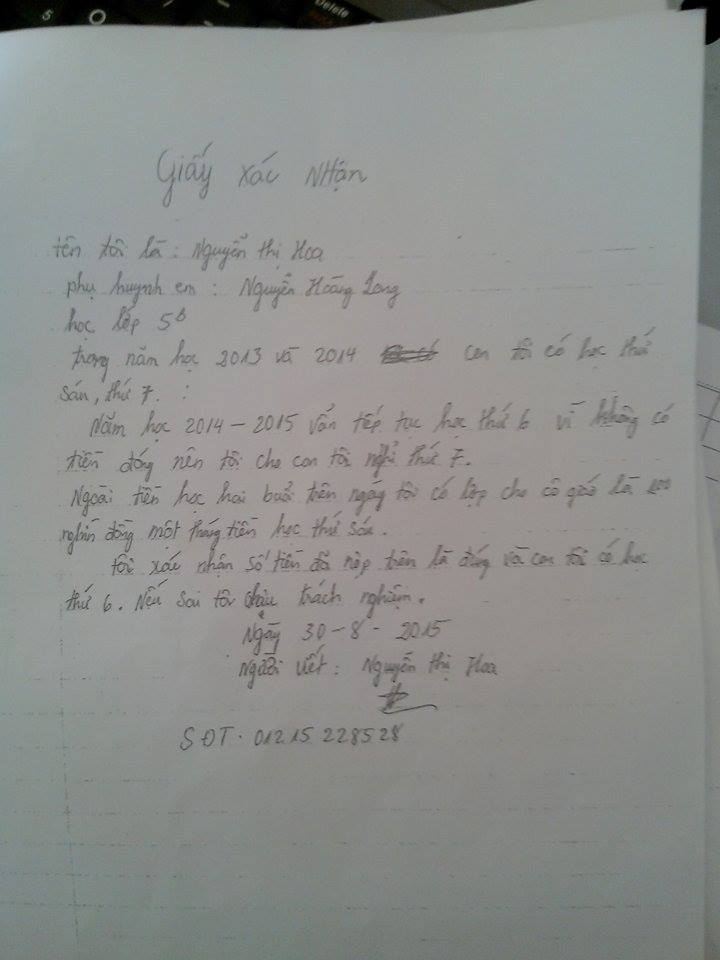 Delete
5
O
Giấy xác Nhận
tên tôi là : Nguyễn thị Hoa
phụ huynh em : Nguyễn Hoàng Long
học lớp 5B
trong năm học 2013 và 2014 con tôi có học thứ
sáu, thứ 7. :
Năm học 2014 - 2015 vẫn tiếp tục học thứ 6 vì không có
tiền đóng nên tôi cho con tôi nghỉ thứ 7.
Ngoài tiền học hai buổi trên ngày tôi có lộp cho cô giáo là 200
nghìn đồng một tháng tiền học thứ sáu.
tôi xác nhận số tiền đã nộp trên là đúng và con tôi có học
thứ 6. Nếu sai tôi chịu trách nghiệm.
Ngày 30 - 8 - 2015
Người viết : Nguyễn thị Hoa
SĐT. 01215 228528